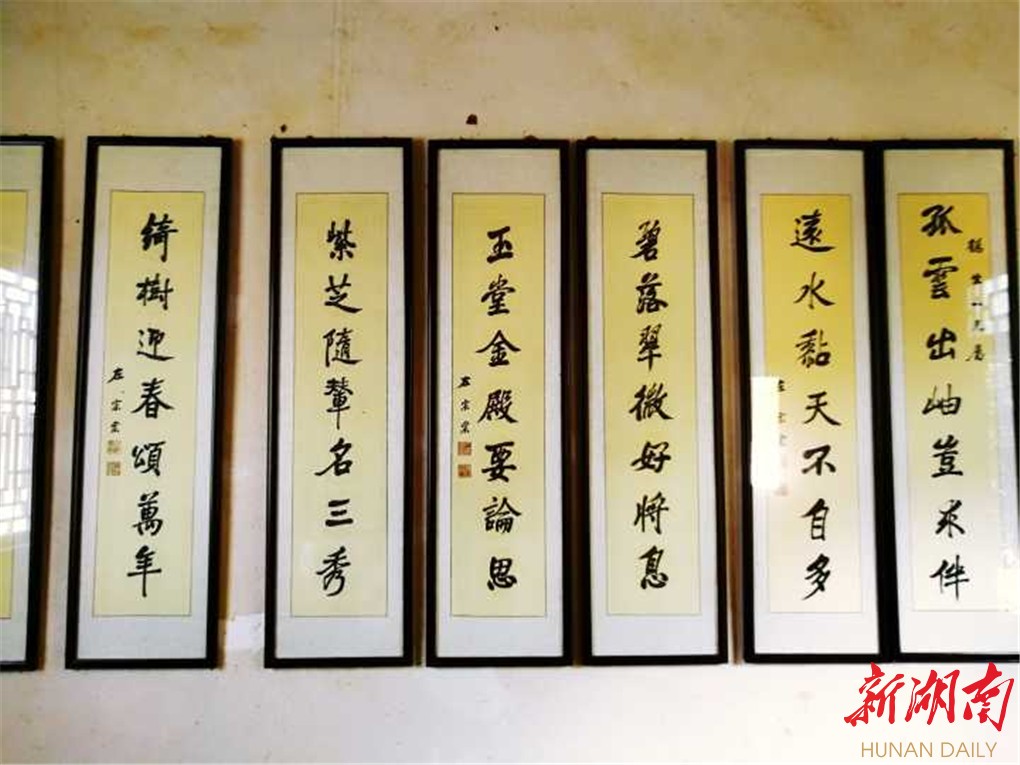 孤雲出岫豈求伴
遠水黏天不自多
左宗棠
碧落翠微好將息
玉堂金殿要論思
左宗棠
紫芝隨輦名三秀
綺樹迎春頌萬年
左宗棠
新湖南
HUNAN DAILY